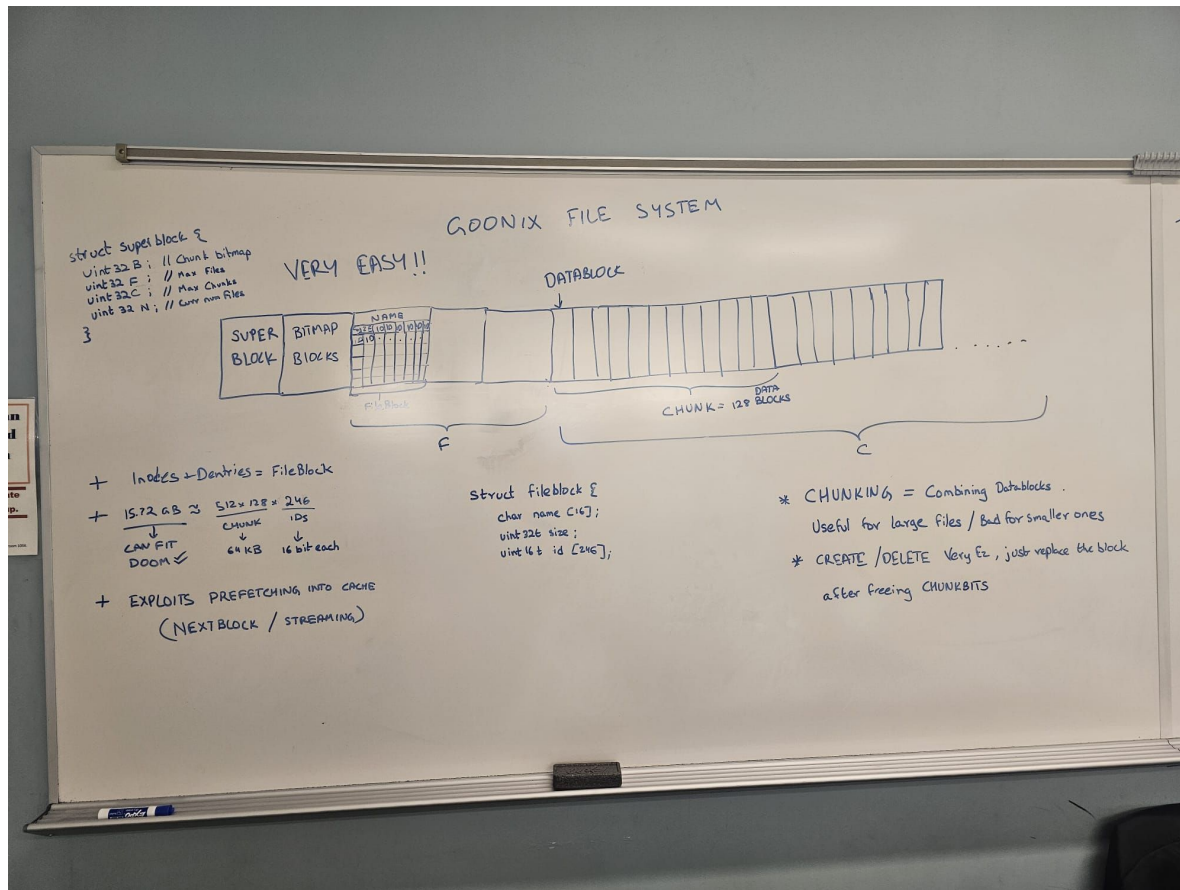 GOONIX FILE SYSTEM
struct superblock {
uint32 B ; // Chunk bitmap
uint32 F ; // Max Files
uint32 C ; // Max Chunks
uint 32 N ; // Curr num Files
}
VERY EASY!!
DATABLOCK
SUPER
BLOCK
BITMAP
BLOCKS
NAME
SIZE ID ID ID ID ID ID
ID ID
FileBlock
F
CHUNK = 128 DATA
BLOCKS
C
+ Inodes + Dentries = FileBlock
+ 15.72 GB ≈ 512 x 128 x 246
CHUNK IDs
CAN FIT 64 KB 16 bit each
DOOM ✓
+ EXPLOITS PREFETCHING INTO CACHE
(NEXT BLOCK / STREAMING)
struct fileblock {
char name [16] ;
uint 32t size ;
uint 16 t id [246] ;
* CHUNKING = Combining Datablocks .
Useful for large files / Bad for smaller ones
* CREATE / DELETE Very Ez , just replace the block
after freeing CHUNKBITS